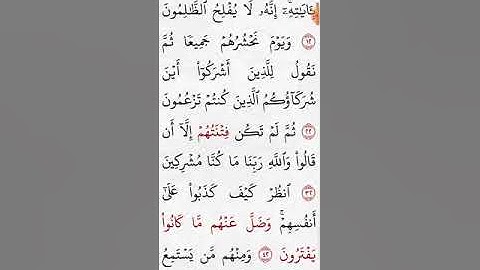 ـَٔايَٰتِهِۦٓۗ إِنَّهُۥ لَا يُفْلِحُ ٱلظَّٰلِمُونَ
١٢ وَيَوْمَ نَحْشُرُهُمْ جَمِيعًا ثُمَّ
نَقُولُ لِلَّذِينَ أَشْرَكُوٓا۟ أَيْنَ
شُرَكَآؤُكُمُ ٱلَّذِينَ كُنتُمْ تَزْعُمُونَ
٢٢ ثُمَّ لَمْ تَكُن فِتْنَتُهُمْ إِلَّآ أَن
قَالُوا۟ وَٱللَّهِ رَبِّنَا مَا كُنَّا مُشْرِكِينَ
٣٢ ٱنظُرْ كَيْفَ كَذَبُوا۟ عَلَىٰٓ
أَنفُسِهِمْۚ وَضَلَّ عَنْهُم مَّا كَانُوا۟
يَفْتَرُونَ ٤٢ وَمِنْهُم مَّن يَسْتَمِعُ